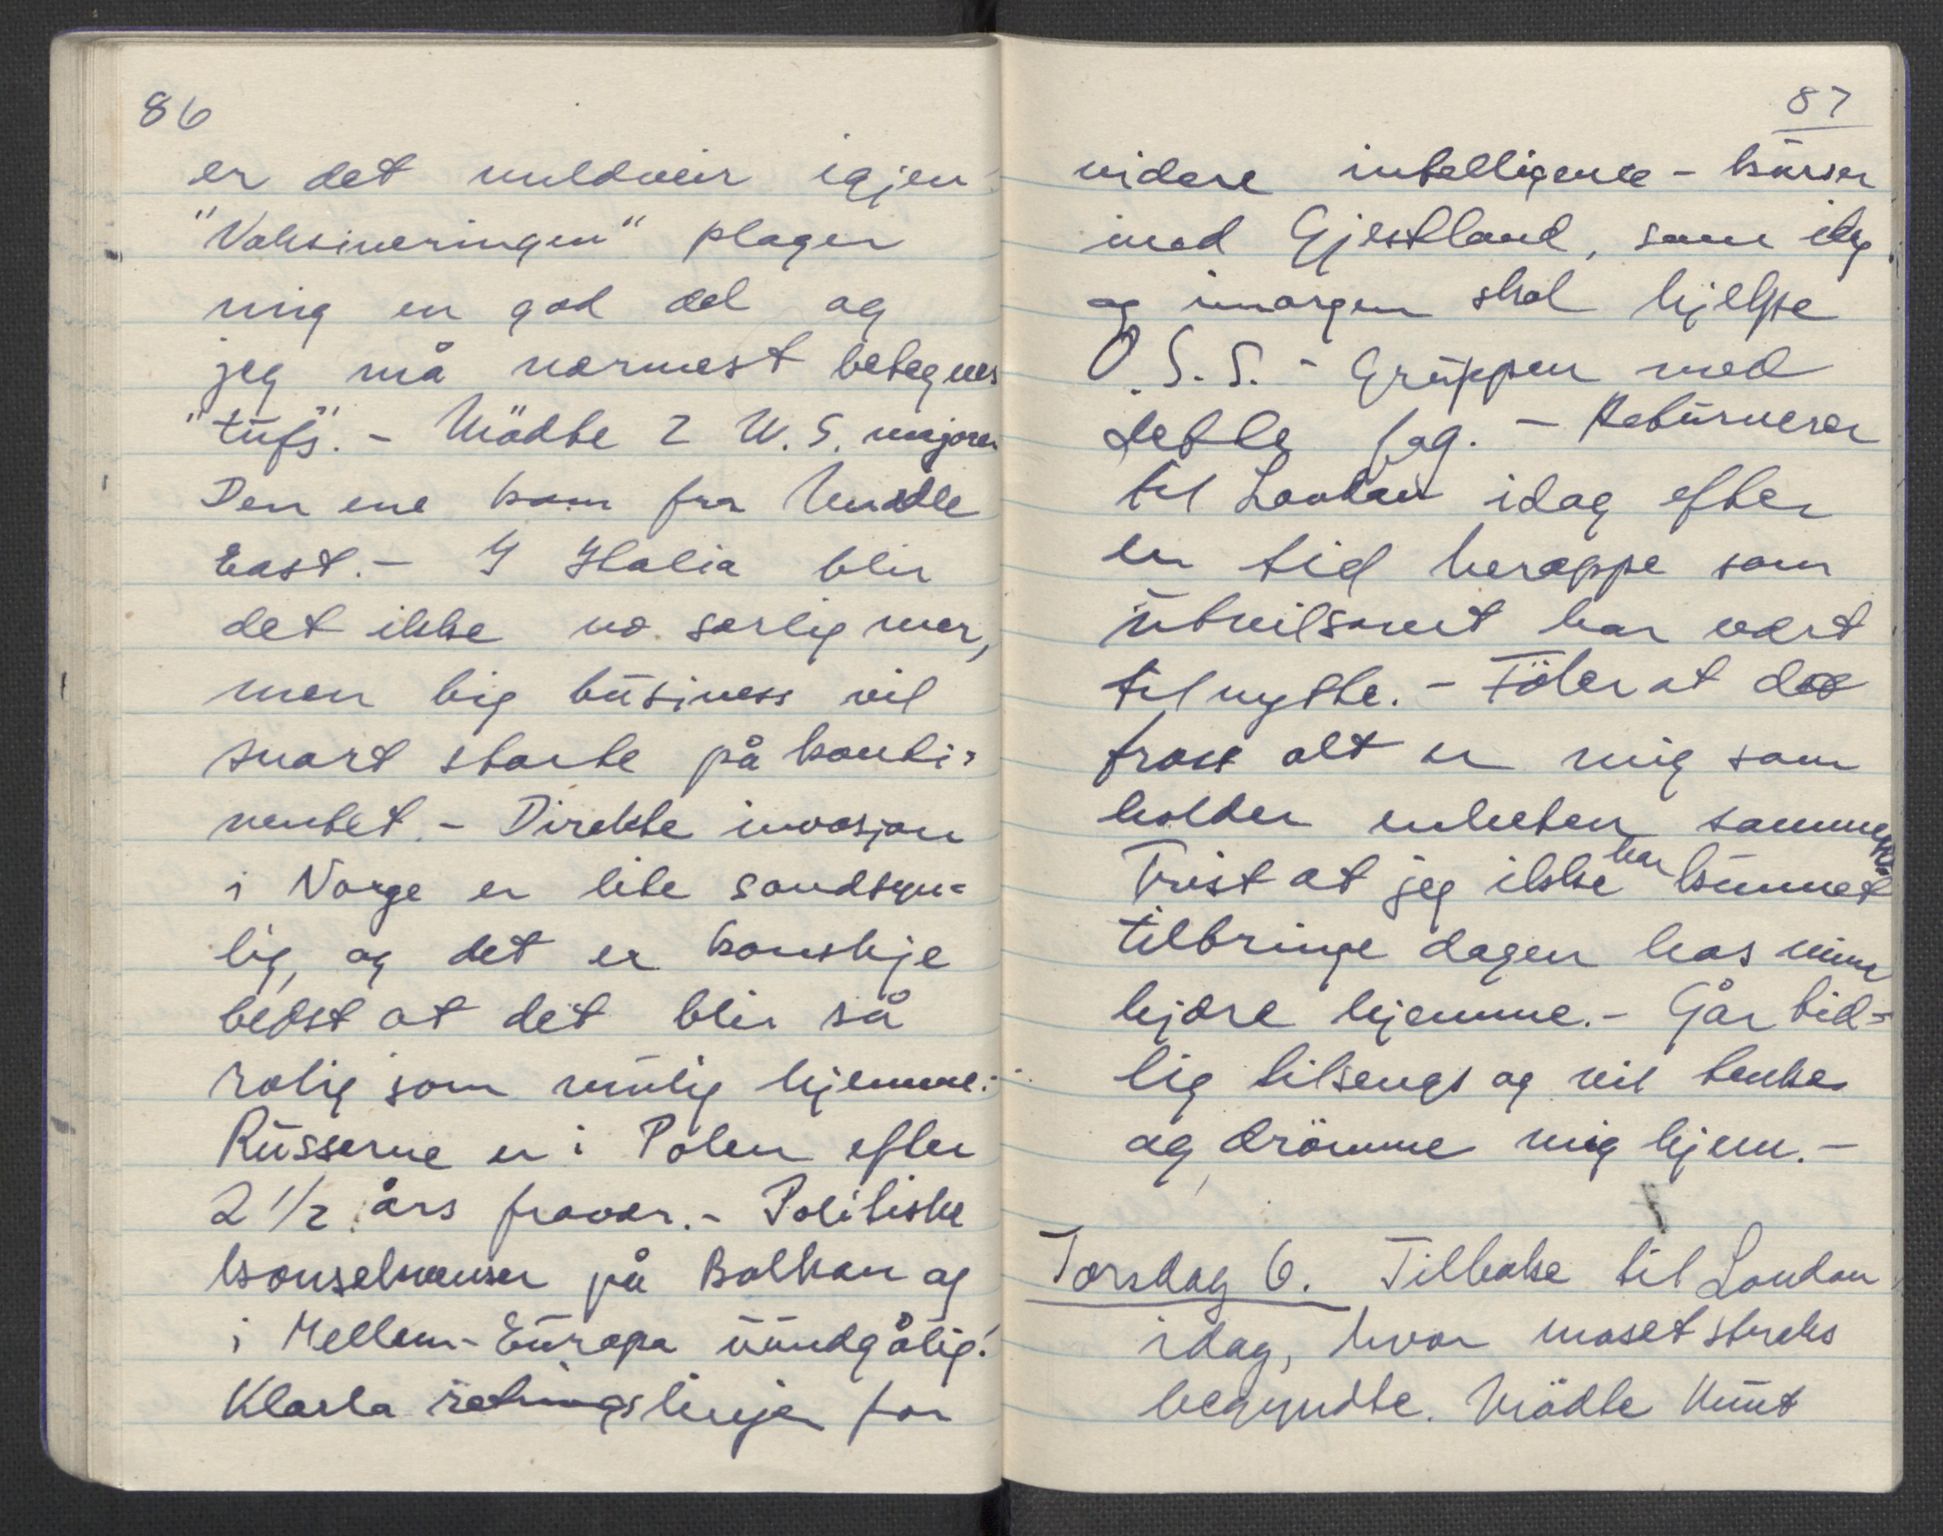 86
er det mildveir igjen
"Vaksineringen" plager
mig en god del og
jeg må nærmest betegnes
"tufs". - Mödte 2 U.S. majorer
Den ene kom fra Middle
East. - I Italia blir
det ikke no særlig mer,
men big business vil
snart starte på konti=
nentet. - Direkte invasjon
i Norge er lite sandsyn=
lig, og det er kanskje
bedst at det blir så
rolig som mulig hjemme.
Russerne er i Polen efter
2 1/2 års fravær. - Politiske
konsekvenser på Balkan og
i Mellem-Europa uundgålig!
Klarla retningslinjer for
87
videre intelligence - kurser
med Gjestland, som idag
og imorgen skal hjelpe
O.S.S. - Gruppen med
dette fag. - Returnerer
til London idag efter
en tid heroppe som
utvilsomt har vært
til nytte. - Föler at det
tross alt er mig som
holder enheten sammen.
Trist at jeg ikke har kunnet
tilbringe dagen hos mine
kjære hjemme. - Går tid=
lig tilsengs og vil tenke
og drömme mig hjem. -
Torsdag 6. Tilbake til London
idag, hvor maset straks
begyndte. Mödte Knut